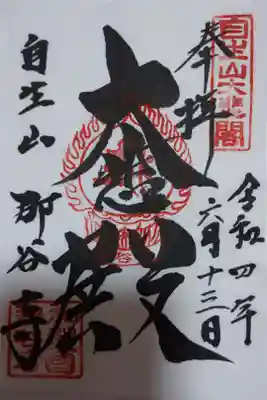 奉拝
令和四年
六月十三日
大悲殿
自生山
那谷寺
自生山大悲閣